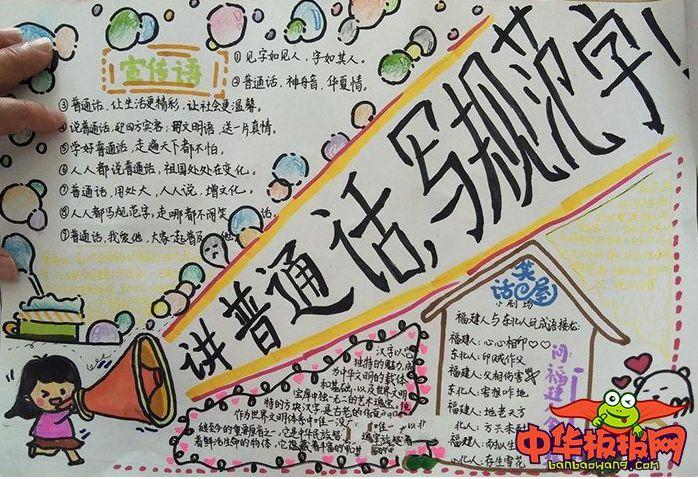 宣传语
①见字如见人，字如其人。
②普通话，神舟音，华夏情。
③普通话，让生活更精彩，让社会更温馨。
④说普通话，迎四方宾客；用文明语，送一片真情。
⑤学好普通话，走遍天下都不怕。
⑥人人都说普通话，祖国处处在变化。
⑦普通话，用处大，人人说，增文化。
⑧人人都写规范字，走哪都不闹笑话。
⑨普通话，我爱他，大家一起普及他
讲普通话，写规范字！
汉字以它
独特的魅力，成
为中华文明的载体
和基础，以及世界文明
宝库中独一无二的艺术瑰宝，
特的方块汉字是古老的
作为世界文明体系中唯一没
着鲜活生命的物体，它
笑话屋
小剧场
福建人与东北人玩成语接龙：
福建人：心心相印♡♡
东北人：印贼作父
福建人：父相伤害
东北人：害想咋地
福建人：地老天方
东北人：方
福建人：
东北人：存生雪花
问：福建
中华板报网
banbaowang.com